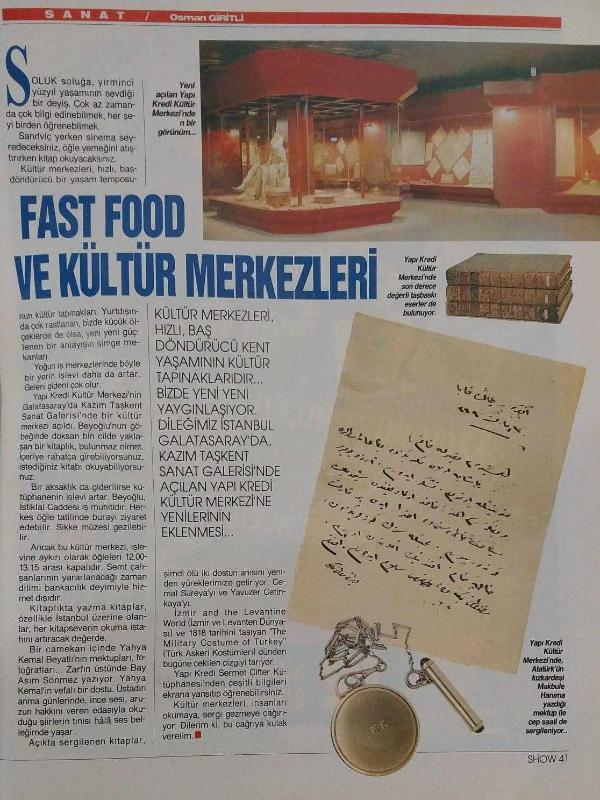 SANAT / Osman GİRİTLİ
SOLUK soluğa, yirminci
yüzyıl yaşamının sevdiği
bir deyiş. Çok az zaman-
da çok bilgi edinebilmek, her şe-
yi birden öğrenebilmek.
Sandviç yerken sinema sey-
redeceksiniz, öğle yemeğini atış-
tırırken kitap okuyacaksınız.
Kültür merkezleri, hızlı, baş-
döndürücü bir yaşam temposu-
Yeni
açılan Yapı
Kredi Kültür
Merkezi'nde
n bir
görünüm...
FAST FOOD
VE KÜLTÜR MERKEZLERİ
Yapı Kredi
Kültür
Merkezi'nde
son derece
değerli taşbaskı
eserler de
bulunuyor.
nun kültür tapınakları. Yurtdışın-
da çok rastlanan, bizde küçük öl-
çeklerde de olsa, yeni yeni güç-
lenen bir anlayışın simge me-
kanları.
Yoğun iş merkezlerinde böyle
bir yerin işlevi daha da artar.
Geleni gideni çok olur.
Yapı Kredi Kültür Merkezi'nin
Galatasaray'da Kazım Taşkent
Sanat Galerisi'nde bir kültür
merkezi açıldı. Beyoğlu'nun gö-
beğinde doksan bin cilde yakla-
şan bir kitaplık, bulunmaz nimet.
İçeriye rahatça girebiliyorsunuz,
istediğiniz kitabı okuyabiliyorsu-
nuz.
Bir aksaklık da giderilirse kü-
tüphanenin işlevi artar. Beyoğlu,
İstiklal Caddesi iş muhitidir. Her-
kes öğle tatilinde burayı ziyaret
edebilir. Sikke müzesi gezilebi-
lir.
Ancak bu kültür merkezi, işle-
vine aykırı olarak öğleleri 12.00-
13.15 arası kapalıdır. Semt çalı-
şanlarının yararlanacağı zaman
dilimi bankacılık deyimiyle hiz-
met dışıdır.
Kitaplıkta yazma kitaplar,
özellikle İstanbul üzerine olan-
lar, her kitapseverin okuma işta-
hını artıracak değerde.
Bir camekan içinde Yahya
Kemal Beyatlı'nın mektupları, fo-
toğrafları... Zarfın üstünde Bay
Asım Sönmez yazıyor. Yahya
Kemal'in vefalı bir dostu. Üstadın
anma günlerinde, ince sesi, aru-
zun hakkını veren edasıyla oku-
duğu şiirlerin tınısı hâlâ ses bel-
leğimde yaşar.
Açıkta sergilenen kitaplar,
KÜLTÜR MERKEZLERİ,
HIZLI, BAŞ
DÖNDÜRÜCÜ KENT
YAŞAMININ KÜLTÜR
TAPINAKLARIDIR...
BİZDE YENİ YENİ
YAYGINLAŞIYOR.
DİLEĞİMİZ İSTANBUL
GALATASARAY'DA,
KAZIM TAŞKENT
SANAT GALERİSİ'NDE
AÇILAN YAPI KREDİ
KÜLTÜR MERKEZİ'NE
YENİLERİNİN
EKLENMESİ...
şimdi ölü iki dostun anısını yeni-
den yüreklerimize getiriyor. Ce-
mal Süreya'yı ve Yavuzer Çetin-
kaya'yı.
İzmir and the Levantine
World (İzmir ve Levanten Dünya-
sı) ve 1818 tarihini taşıyan "The
Military Costume of Turkey"
(Türk Askeri Kostümleri) dünden
bugüne çekilen çizgiyi tarıyor.
Yapı Kredi Sermet Çifter Kü-
tüphanesi'nden çeşitli bilgileri
ekrana yansıtıp öğrenebilirsiniz.
Kültür merkezleri, insanları
okumaya, sergi gezmeye çağırı-
yor. Dilerim ki, bu çağrıya kulak
verelim.
Yapı Kredi
Kültür
Merkezi'nde,
Atatürk'ün
kızkardeşi
Makbule
Hanıma
yazdığı
mektup ile
cep saati de
sergileniyor..
SHOW 41